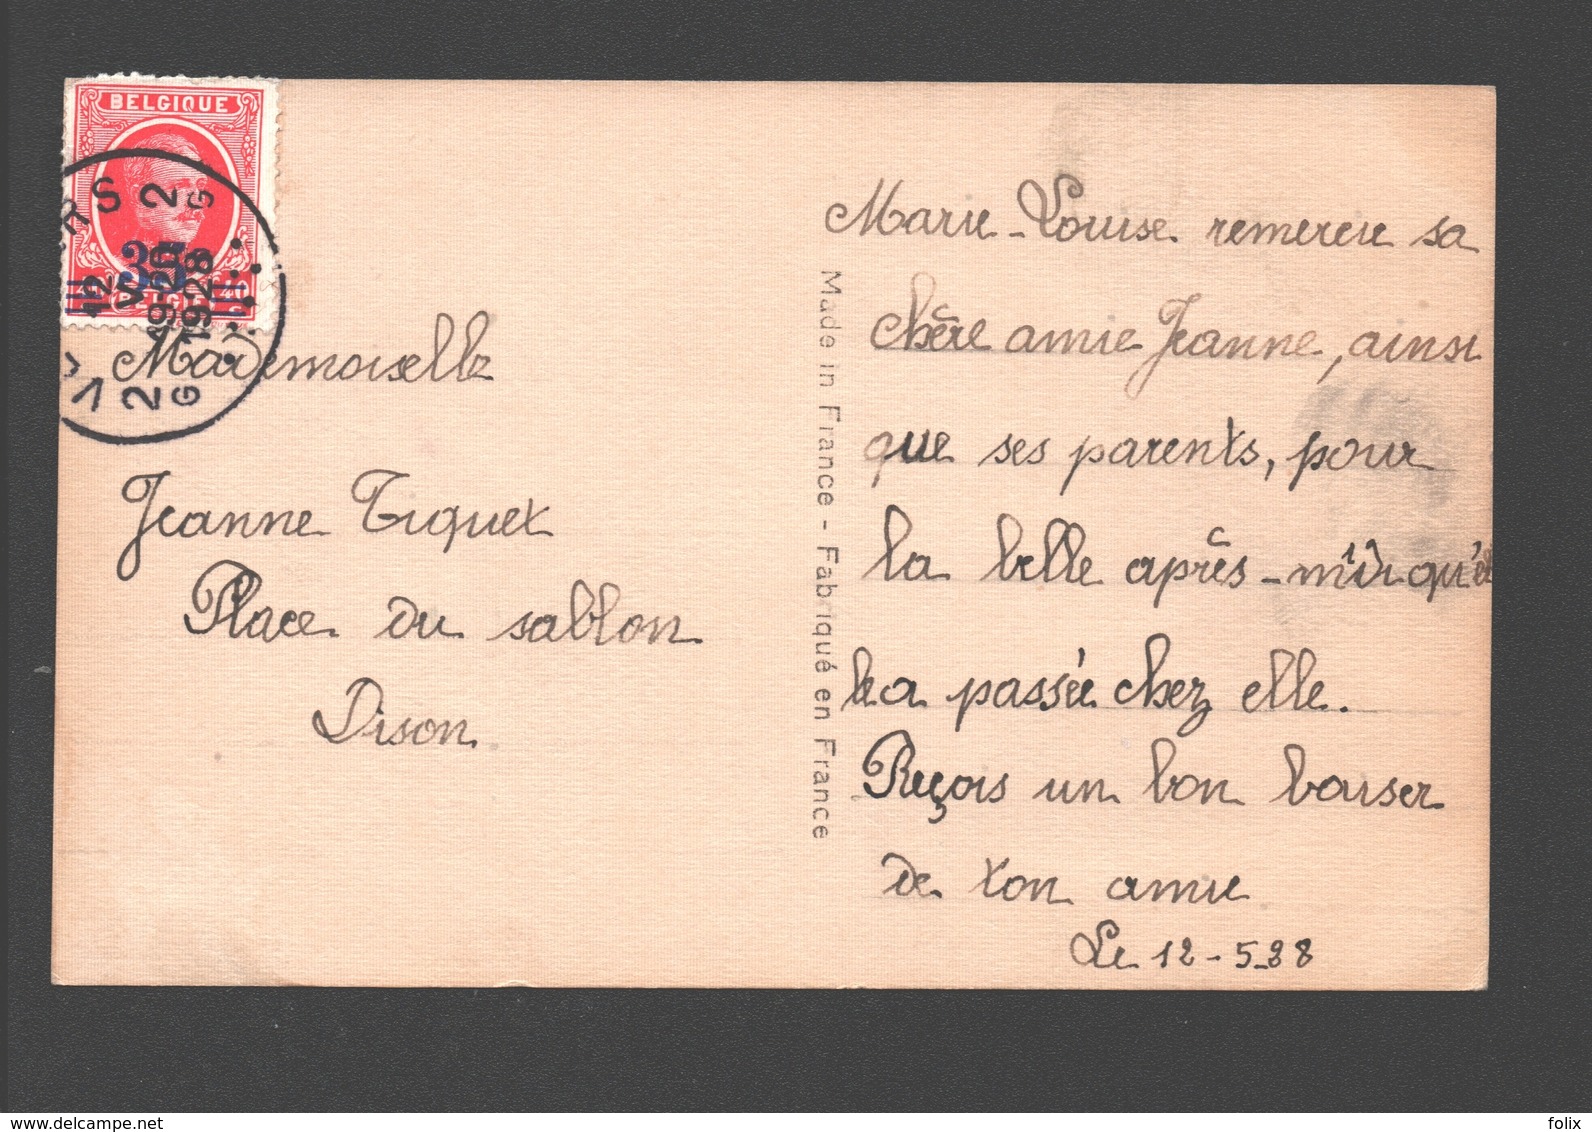 BELGIQUE
35
BELGIË
VERVIERS
2 G
12 V
19-20
1928
2 G
Mademoiselle
Jeanne Tiquet
Place du sablon
Dison
Made in France - Fabriqué en France
Marie-Louise remercie sa
chère amie Jeanne, ainsi
que ses parents, pour
la belle après-midi qu'el
le a passée chez elle.
Reçois un bon baiser
de ton amie
Le 12-5-28
folix